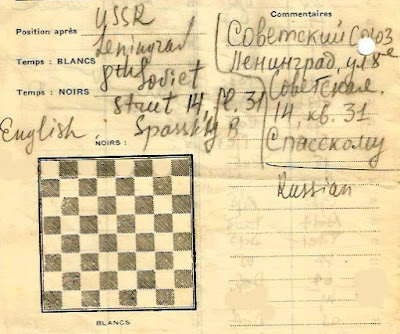 Position après USSR
Leningrad
Temps : BLANCS 8th Soviet
Temps : NOIRS street 14, fl. 31
English : Spassky B
NOIRS :
BLANCS
Commentaires
Советский Союз
Ленинград, ул 8ᵉ
Советская.
14, кв. 31
Спасскому
Russian